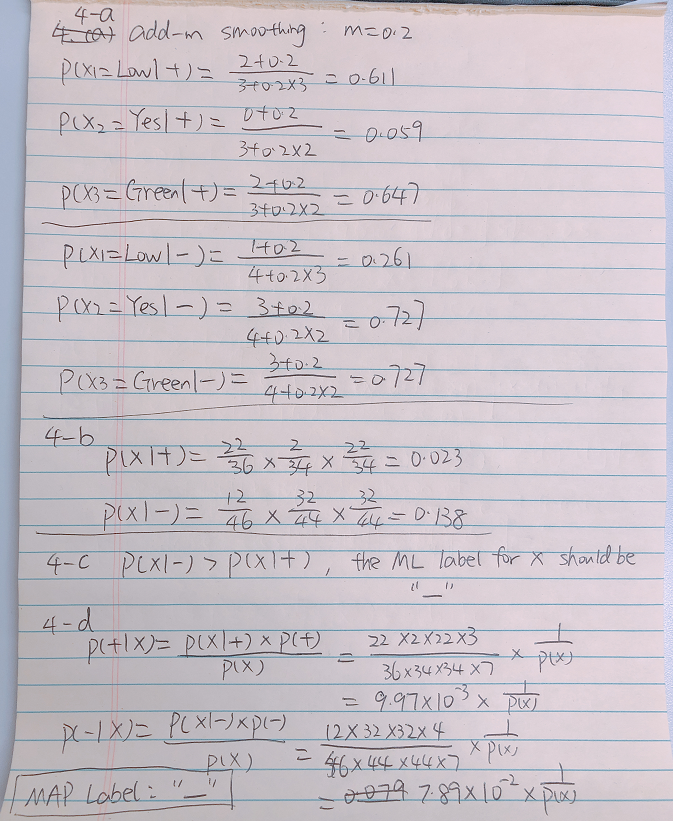 4-a
4. (a) add-m smoothing : m=0.2
P(X1=Low|+) = (2+0.2)/(3+0.2×3) = 0.611
P(X2=Yes|+) = (0+0.2)/(3+0.2×2) = 0.059
P(X3=Green|+) = (2+0.2)/(3+0.2×2) = 0.647
P(X1=Low|-) = (1+0.2)/(4+0.2×3) = 0.261
P(X2=Yes|-) = (3+0.2)/(4+0.2×2) = 0.727
P(X3=Green|-) = (3+0.2)/(4+0.2×2) = 0.727
4-b
P(X|+) = 22/36 × 2/34 × 22/34 = 0.023
P(X|-) = 12/46 × 32/44 × 32/44 = 0.138
4-c P(X|-) > P(X|+), the ML label for x should be
"_"
4-d
P(+|X) = (P(X|+) × P(+))/P(X) = (22×2×22×3)/(36×34×34×7) × 1/P(X)
= 9.97×10^-3 × 1/P(X)
P(-|X) = (P(X|-) × P(-))/P(X) = (12×32×32×4)/(46×44×44×7) × 1/P(X)
MAP Label : "_" = 0.079 7.89×10^-2 × 1/P(X)